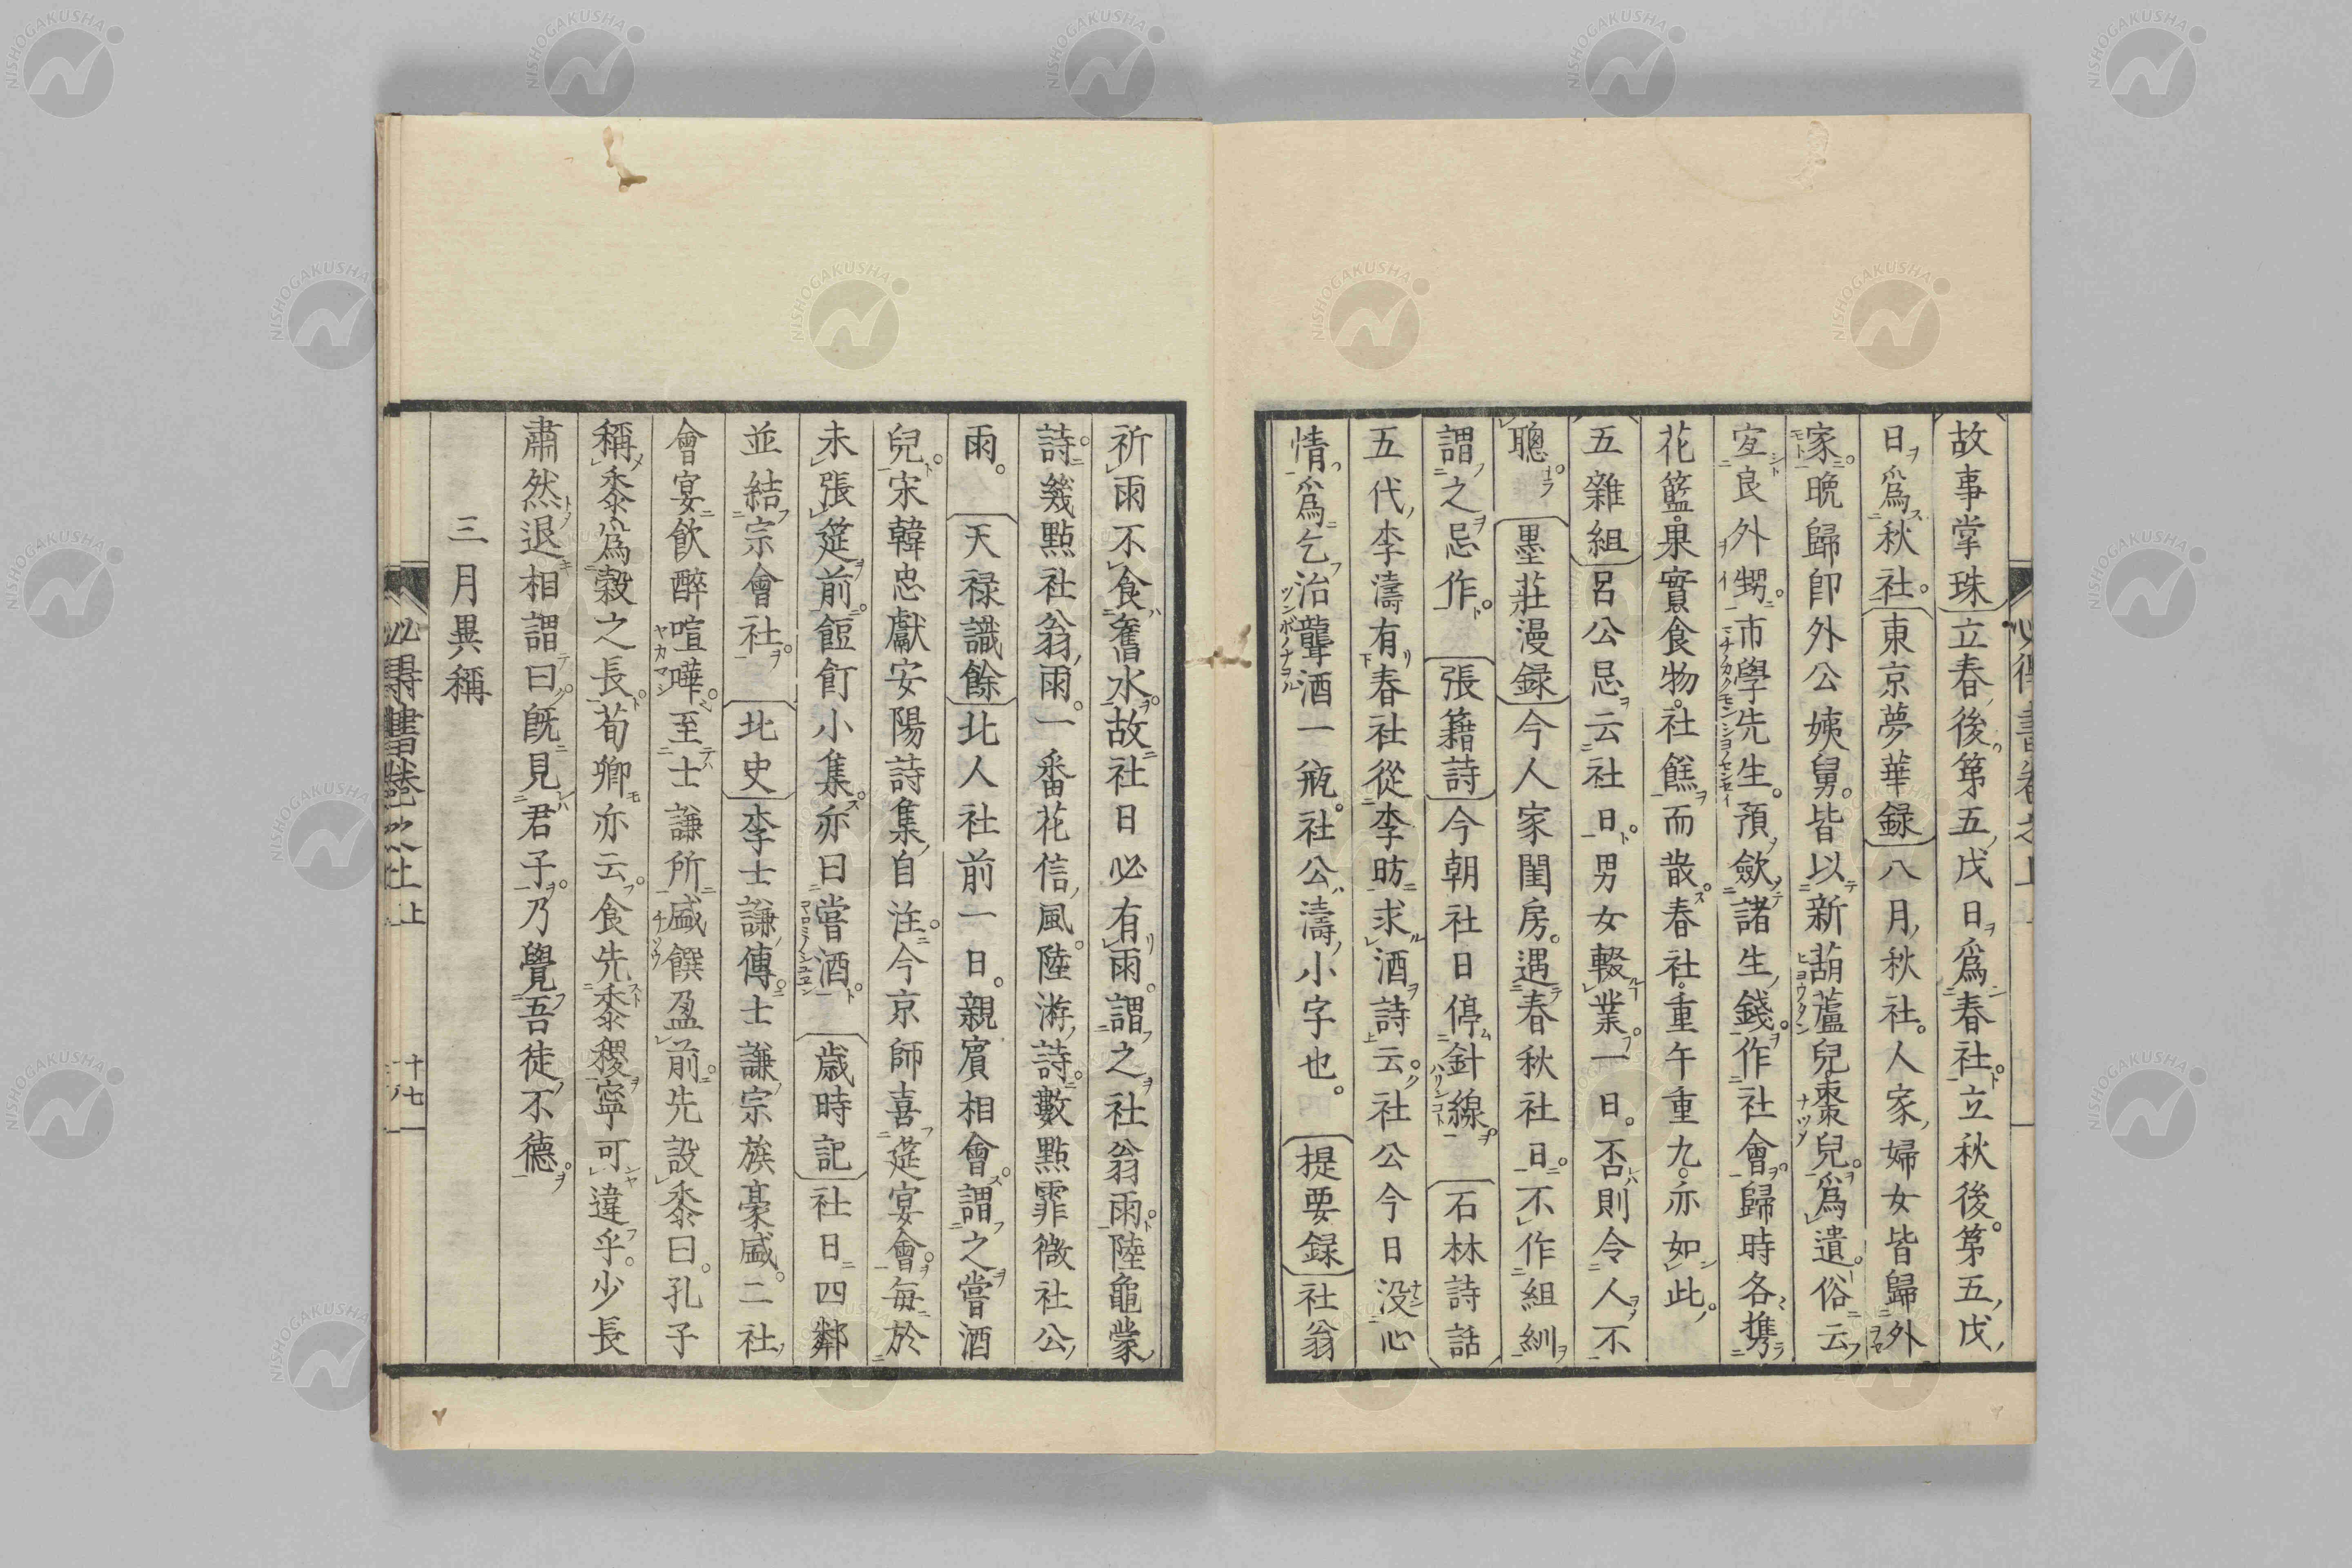 故事掌珠立春後第五戊日爲春社立秋後第五戊
日爲秋社東京夢華録八月秋社人家婦女皆歸外
家晩歸即外公姨舅皆以新葫蘆兒棗兒爲遺俗云
宜良外甥市學先生預斂諸生錢作社會歸時各携
花籃果實食物社餻而散春社重午重九亦如此
五雜組呂公忌云社日男女輟業一日否則令人不
聰墨莊漫録今人家閨房遇春秋社日不作組紃
謂之忌作張籍詩今朝社日停針線石林詩話
五代李濤有春社從李昉求酒詩云社公今日没心
情爲乞治聾酒一瓶社公濤小字也提要録社翁
祈雨不食舊水故社日必有雨謂之社翁雨陸龜蒙
詩幾點社翁雨一番花信風陸游詩數點霏微社公
雨天禄識餘北人社前一日親賓相會謂之嘗酒
兒宋韓忠獻安陽詩集自注今京師喜筵宴會每於
未張筵前餖飣小集亦曰嘗酒歳時記社日四鄰
並結宗會社北史李士謙傳士謙宗族豪盛二社
會宴飲醉喧嘩至士謙所盛饌盈前先設黍曰孔子
稱黍爲穀之長荀卿亦云食先黍稷寧可違乎少長
肅然退相謂曰既見君子乃覺吾徒不德
三月異稱
十七
NISHOGAKUSHA